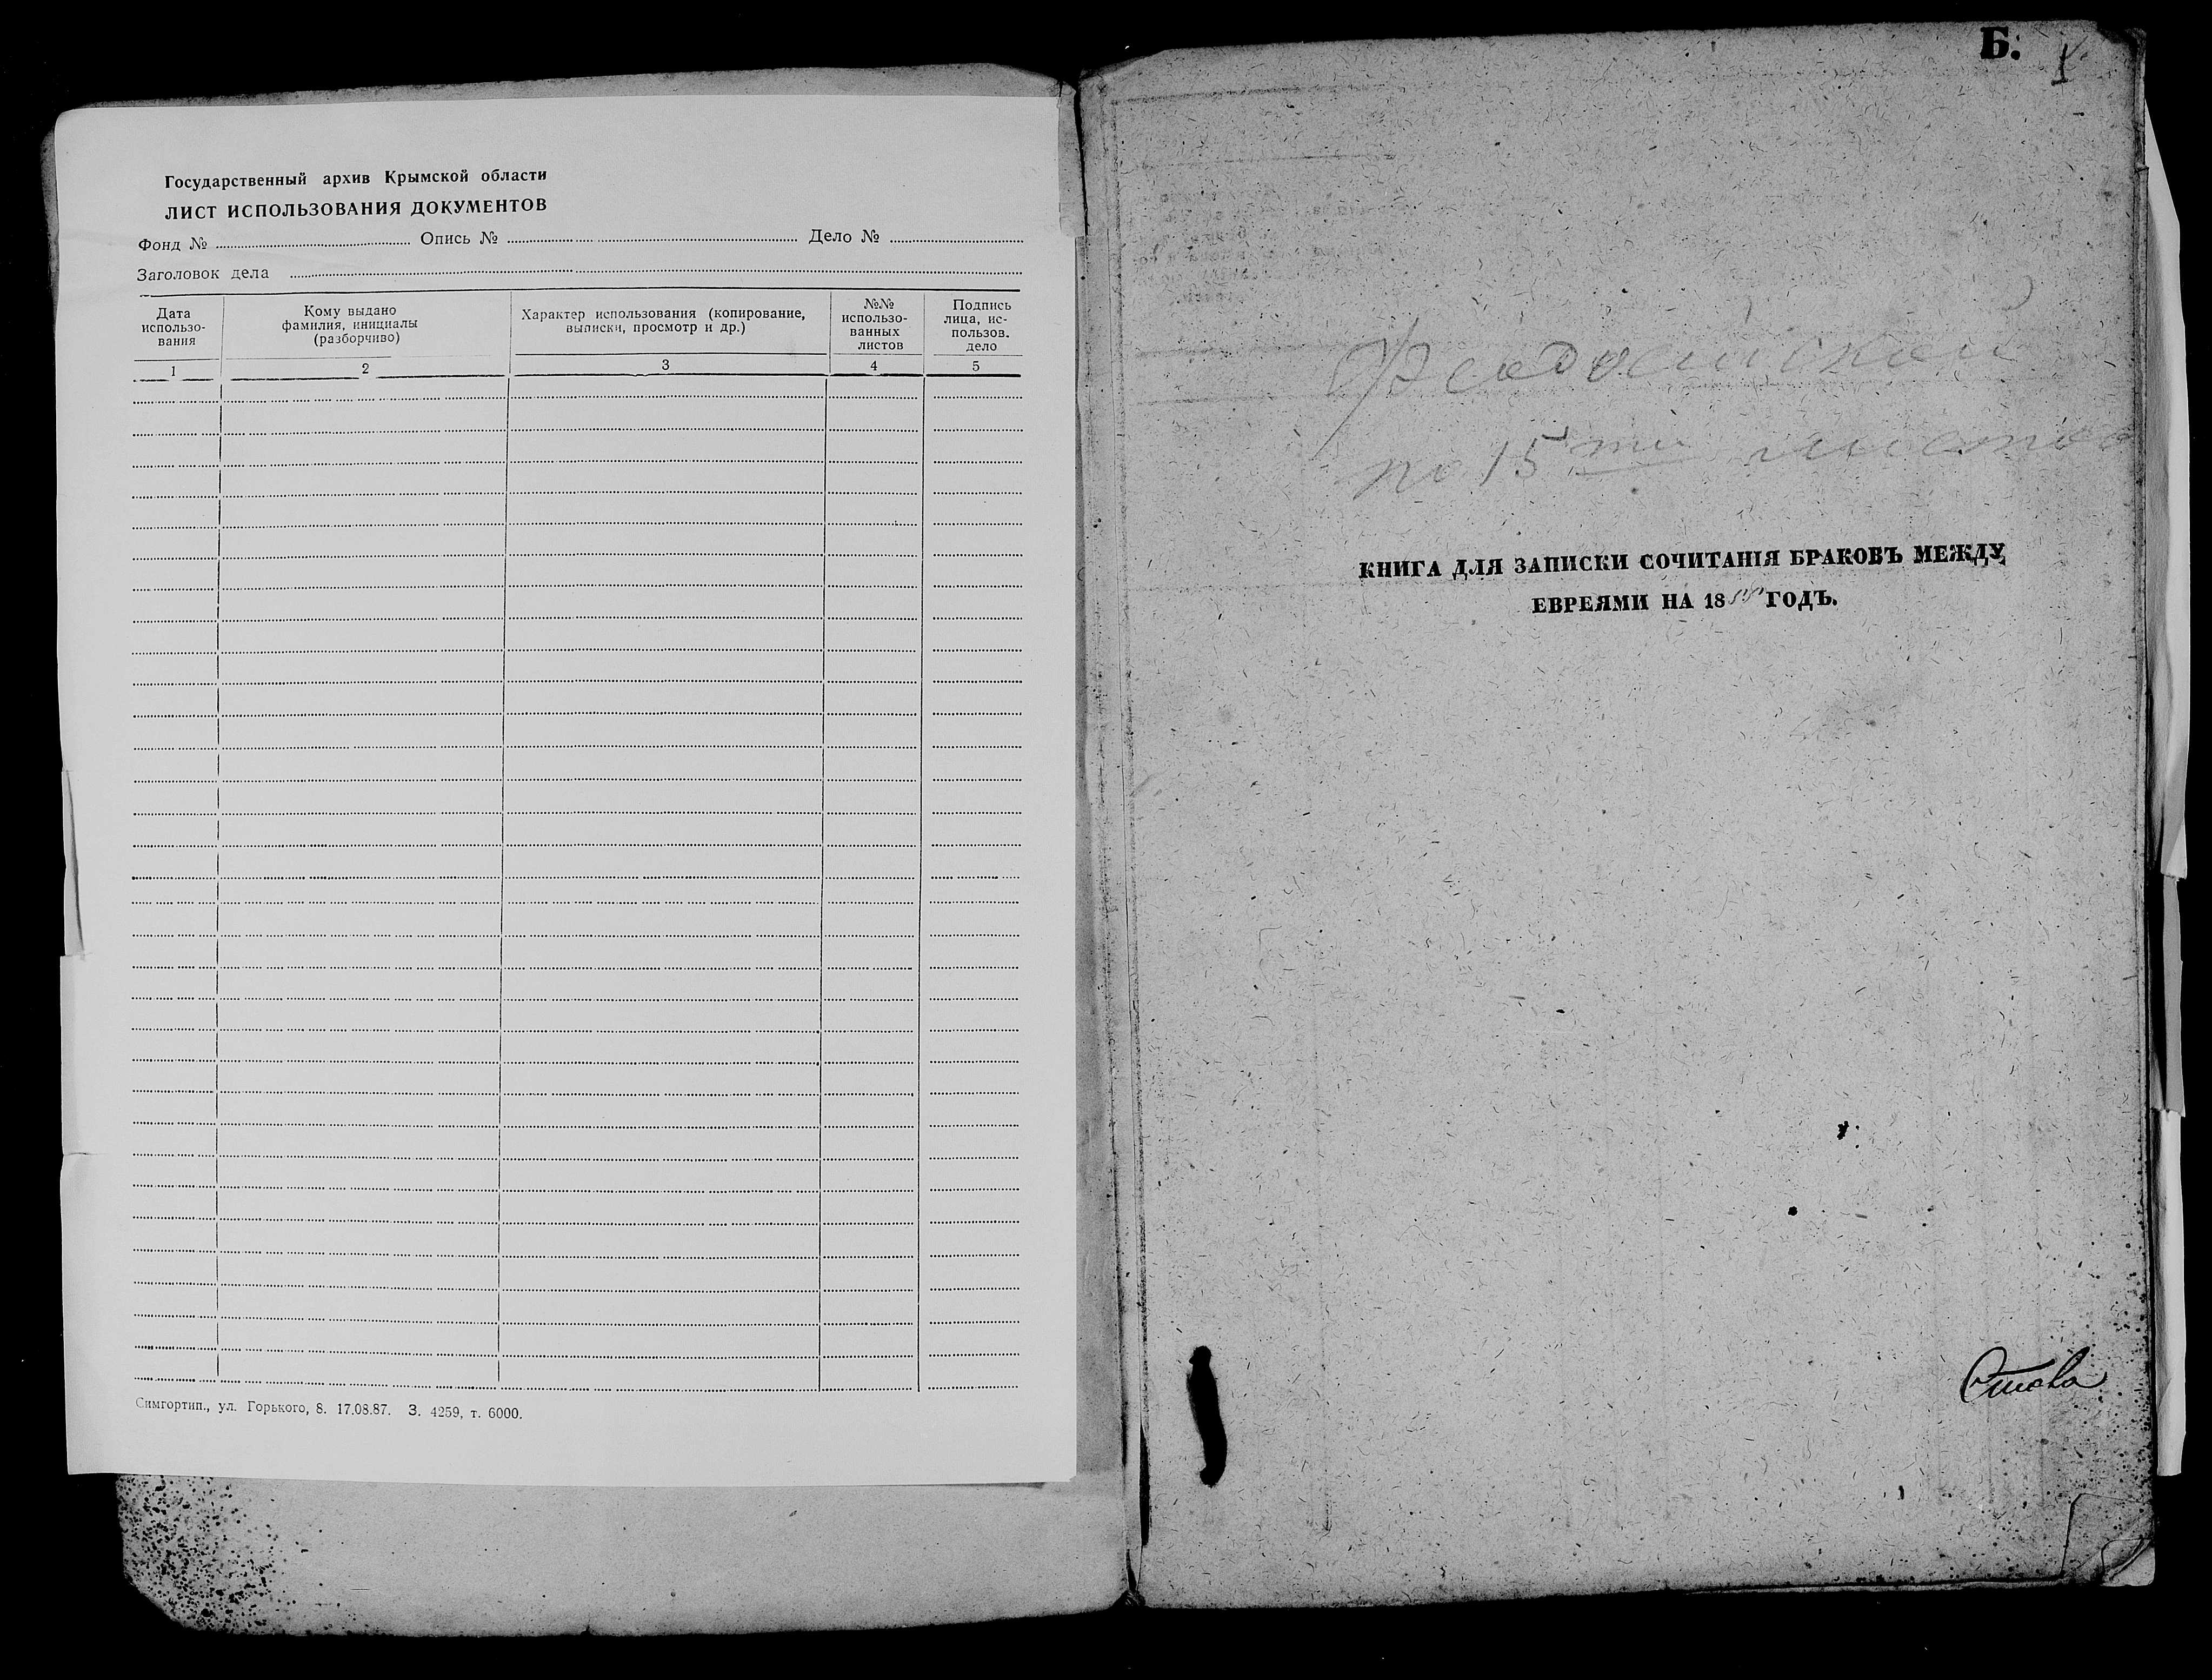 Государственный архив Крымской области
ЛИСТ ИСПОЛЬЗОВАНИЯ ДОКУМЕНТОВ
Фонд № Опись № Дело №
Заголовок дела
Дата использо-вания
Кому выдано фамилия, инициалы (разборчиво)
Характер использования (копирование, выписки, просмотр и др.)
№№ использо-ванных листов
Подпись лица, ис-пользов. дело
1 2 3 4 5
Симгортип., ул. Горького, 8. 17.08.87. З. 4259, т. 6000.
Б.
Феодосийской
по 15ти листов
КНИГА ДЛЯ ЗАПИСКИ СОЧИТАНІЯ БРАКОВЪ МЕЖДУ
ЕВРЕЯМИ НА 18 ГОДЪ.